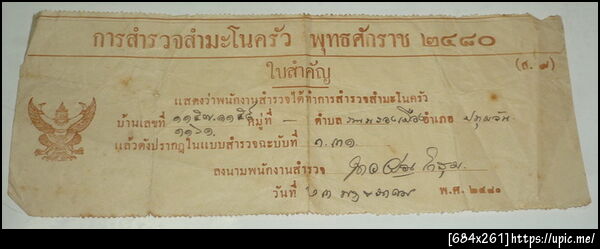 การสำรวจสำมะโนครัว พุทธศักราช ๒๔๘๐
(ส. ๗)
ใบสำคัญ
แสดงว่าพนักงานสำรวจได้ทำการสำรวจสำมะโนครัว
บ้านเลขที่ ๑๑๕๗.๑๑๕๙ หมู่ที่ — ตำบล อำเภอ ปทุมวัน
๑๑๖๑.
แล้วดังปรากฏในแบบสำรวจฉะบับที่ ๑.๓๑.
ลงนามพนักงานสำรวจ
วันที่ ๒๓ พฤษภาคม พ.ศ. ๒๔๘๐
[684x261]https://upic.me/